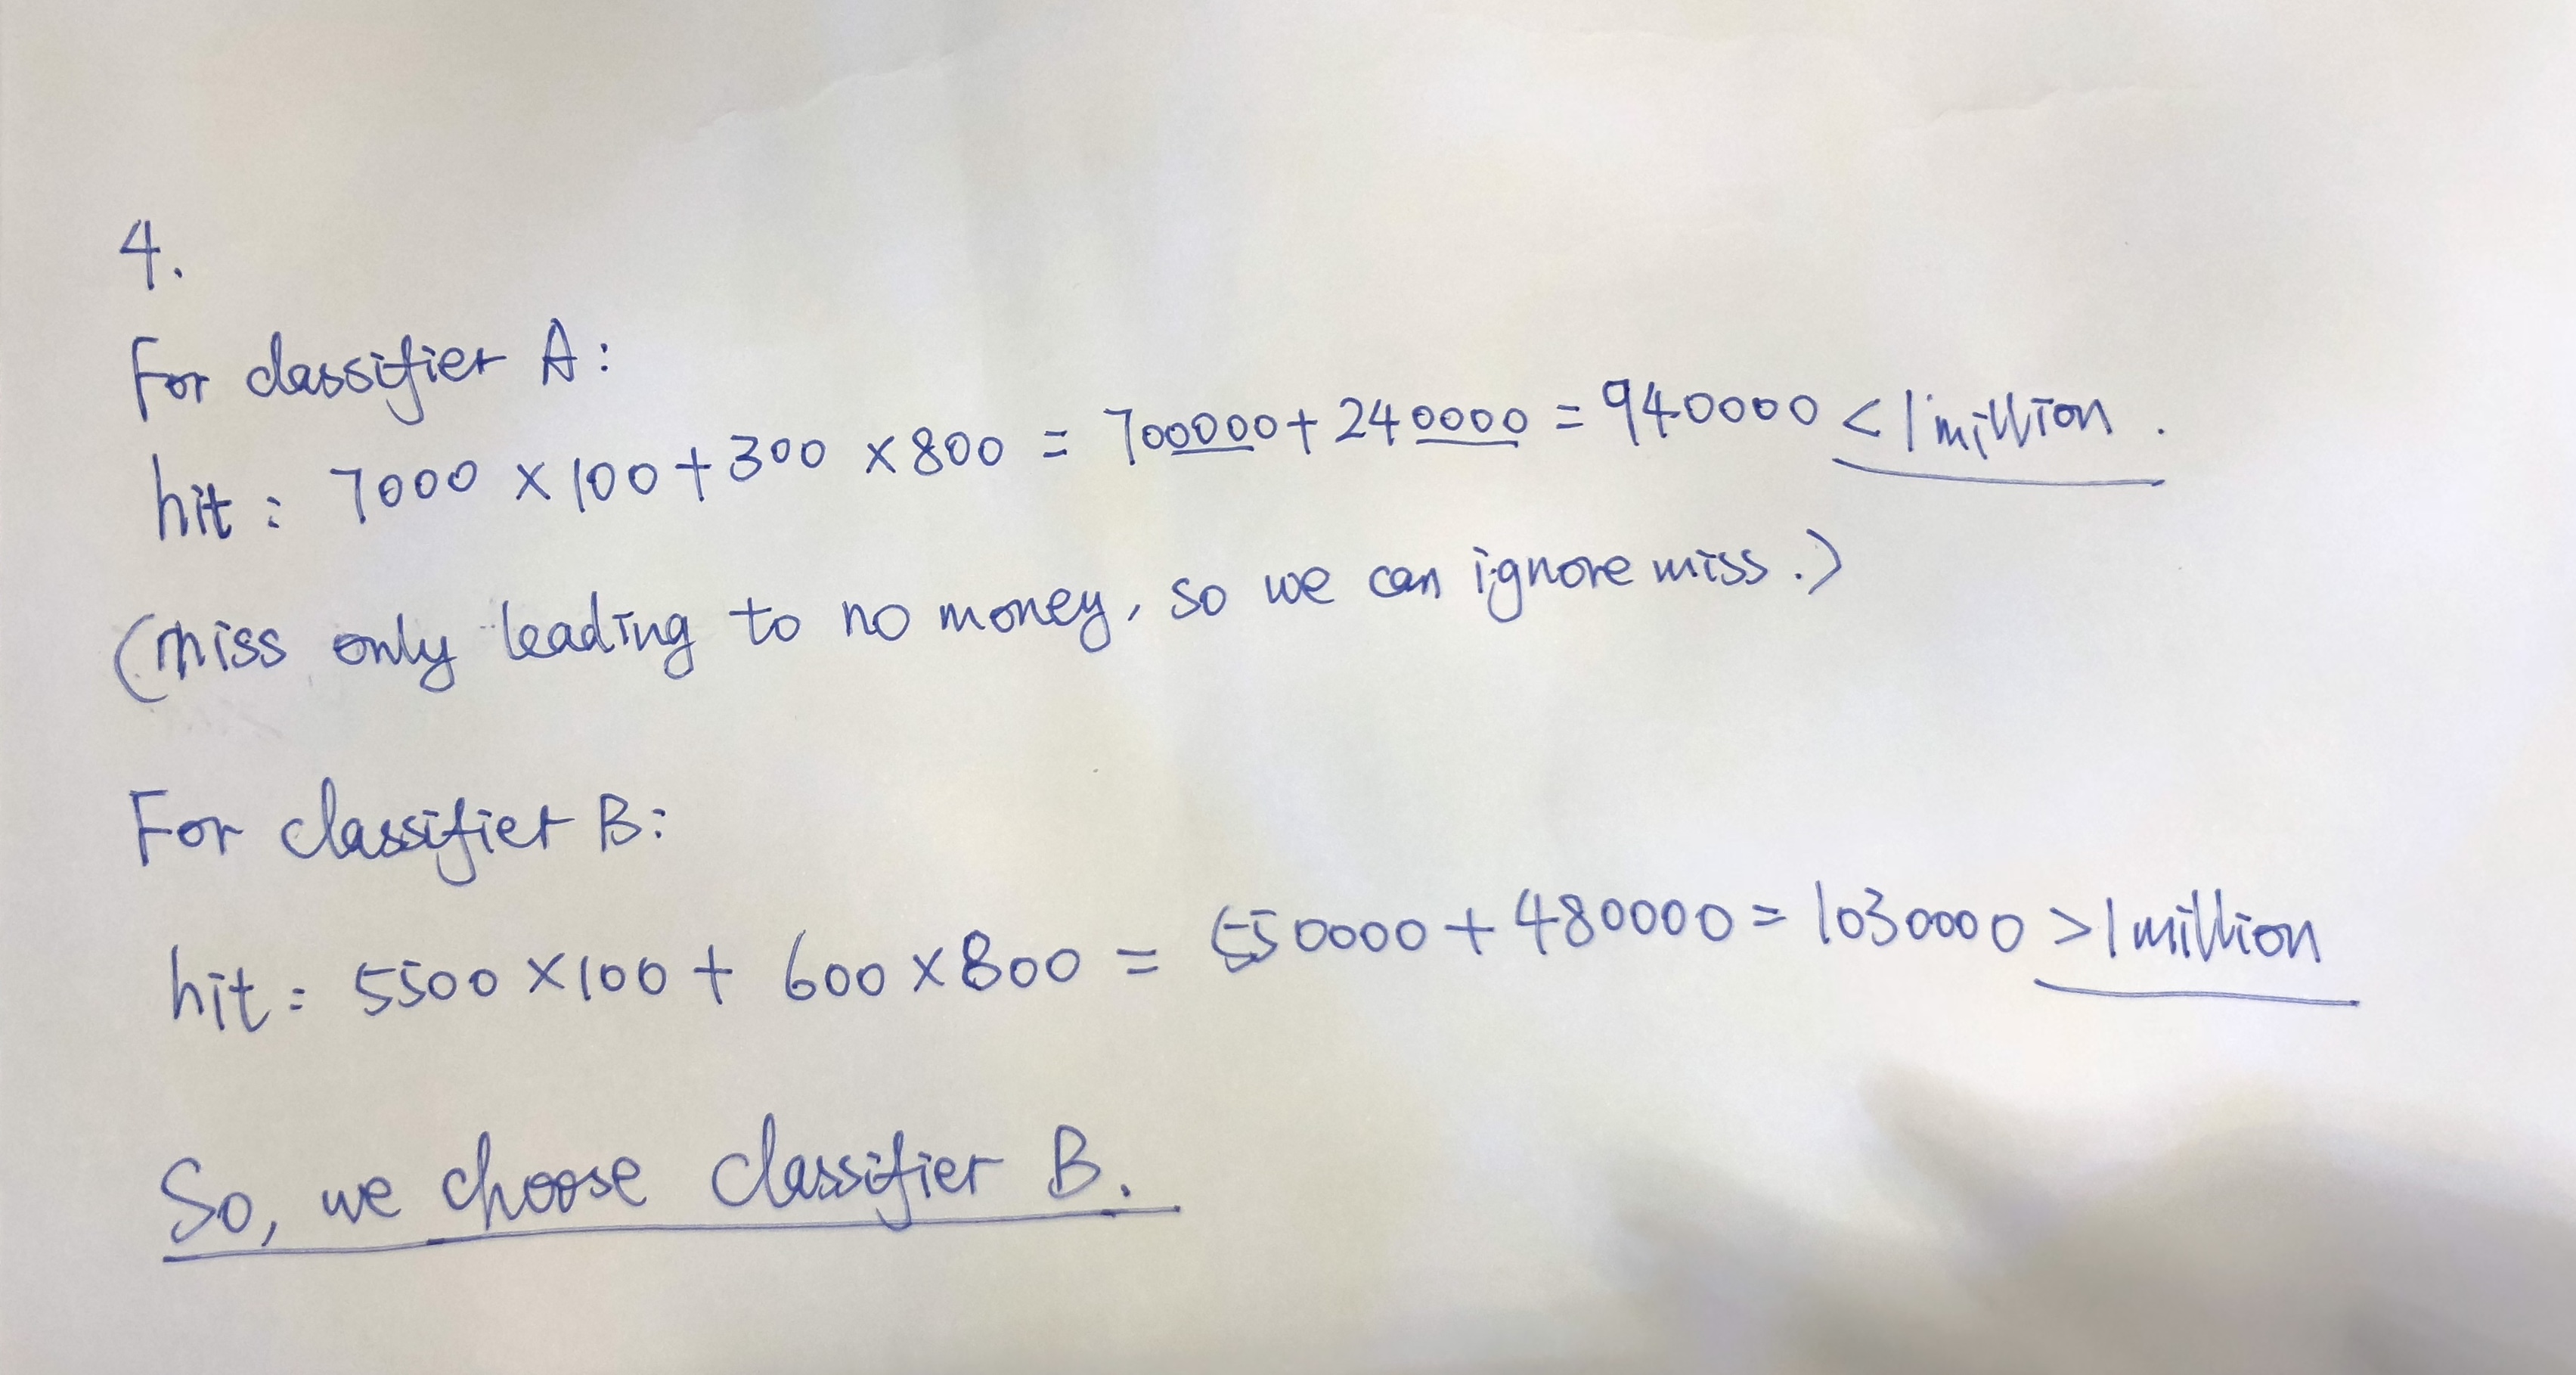 4.
For classifier A:
hit: 7000 × 100 + 300 × 800 = 700000 + 240000 = 940000 < 1 million.
(miss only leading to no money, so we can ignore miss.)
For classifier B:
hit: 5500 × 100 + 600 × 800 = 550000 + 480000 = 1030000 > 1 million
So, we choose classifier B.